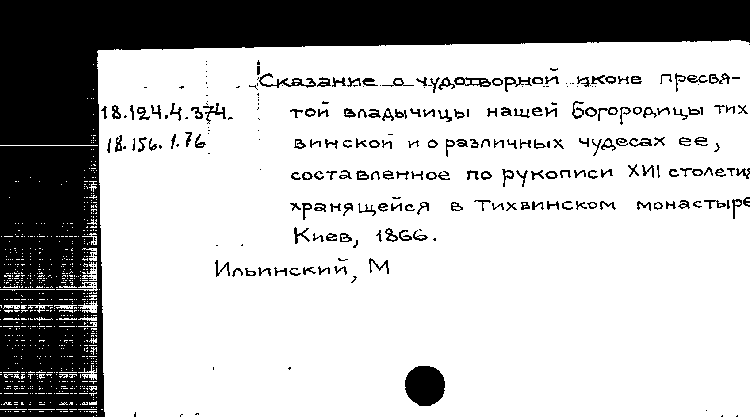 Сказание о чудотворной иконе пресвя-
18.124.4.374. той владычицы нашей Богородицы тих
18.156.1.76 винской и о различных чудесах ее,
составленное по рукописи XVII столетия
хранящейся в Тихвинском монастыре
Киев, 1866.
Ильинский, М